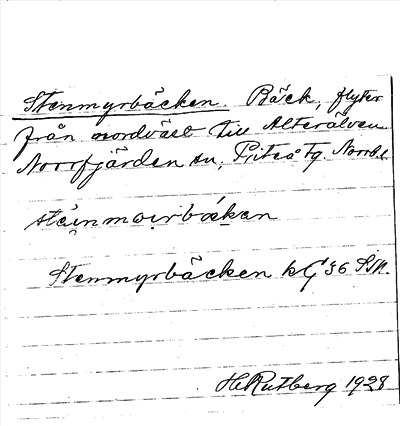 Stenmyrbäcken. Bäck, flyter
från nordväst till Alterälven
Norrfjärden sn, Piteå tg. Norrb. l.
stäinmoirbäken
Stenmyrbäcken bG 36 SIM.
HRutberg 1928